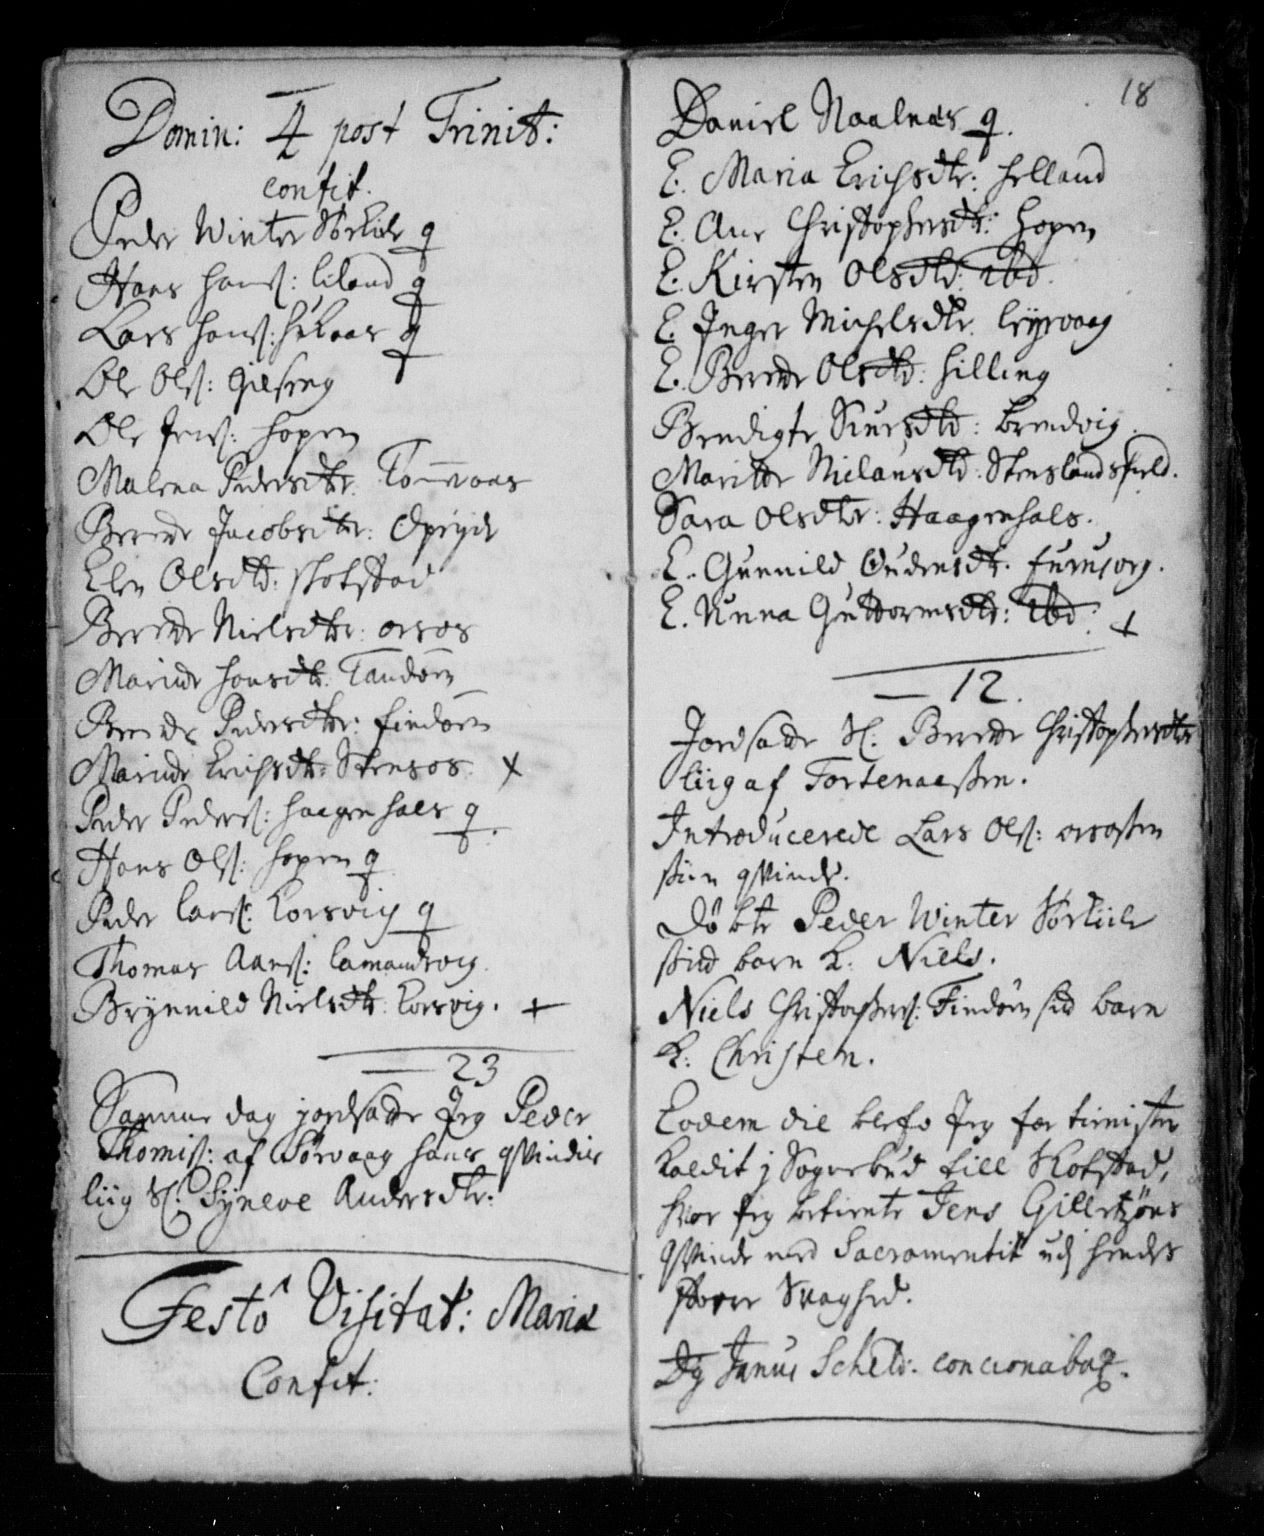 Domin: 4 post Trinit:
Confit.
Peder Winter Sørliile q
Hans Hanss: Liland q
Lars Hanss: q
Ole Olss: Gilseng
Ole Jenss: Hopen
Malena Pedersdtr:
Berette Jacobsdtr: Opejd
Elen Olsdtr: Skotstad
Berette Nielsdtr: orsos
Maritte Hansdtr: Tandøen
Berette Pedersdtr: Findøen
Maritte Erichsdtr: Stensos. x
Peder Peders: Haagenhals q
Hans Olss: Hopen q
Peder Larss: Korsvig q
Thomas Aarss:
Brynnild Nielsdtr: Korsvig. +
23
Samme dag jordsatte Jeg Peder
Thomiss: af Sørvaag hans qvindis
liig Sl: Syneve Andersdtr:
Festô Visitat: Mariæ
Confit:
18
Daniel Naalnæs q.
E. Maria Erichsdtr: Helland
E. Ane Christophersdtr: Hopen
E. Kirsten Olsdtr: Ibd.
E. Inger Michelsdtr. Leyrvaag
E. Berette Olsdtr: Hilling
Bendigte Siursdtr: Brendvig.
Maritte Nielausdtr: Stenslandsfield.
Sara Olsdtr: Haagenhals.
E. Gunnild Endresdtr.
E. Unna Guttormsdtr: Ibd: +
12.
Jordsatte Sl: Berette Christophersdtr
liig af Fortenaessen.
Introducerede Lars Olss: orsossen
siin qvinde.
Døbte Peder Winter Sørliile
siid barn K: Niels.
Niels Christophers: Findøen siid barn
K: Christen.
Eodem die blefv Jeg for timisten
kaldit j Sognebud till Skotstad,
hvor Jeg betiente Jens Gillertzøns
qvinde med Sacramentit udj hendes
store Svaghed.
Dg Janus Scheld: concionabaq.